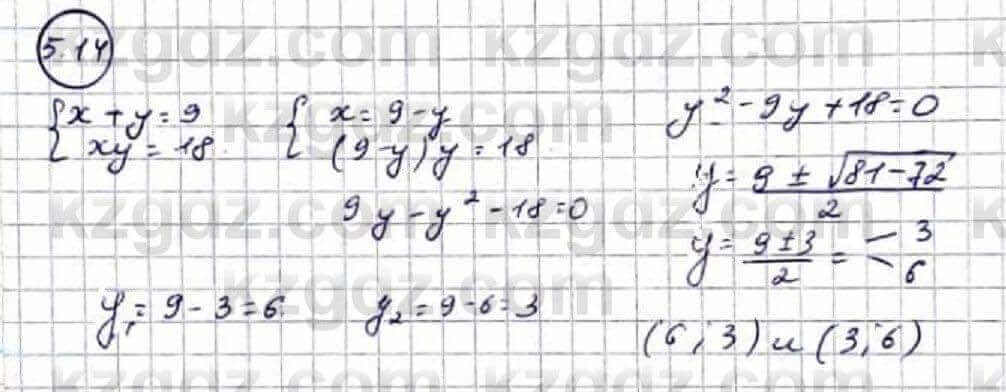 5.14
{ x + y = 9
xy = 18
{ x = 9 - y
(9 - y) y = 18
9y - y² - 18 = 0
y² - 9y + 18 = 0
y = (9 ± √(81 - 72)) / 2
y = (9 ± 3) / 2 = 3
6
y₁ = 9 - 3 = 6
y₂ = 9 - 6 = 3
(6; 3) и (3; 6)
kzgdz.com